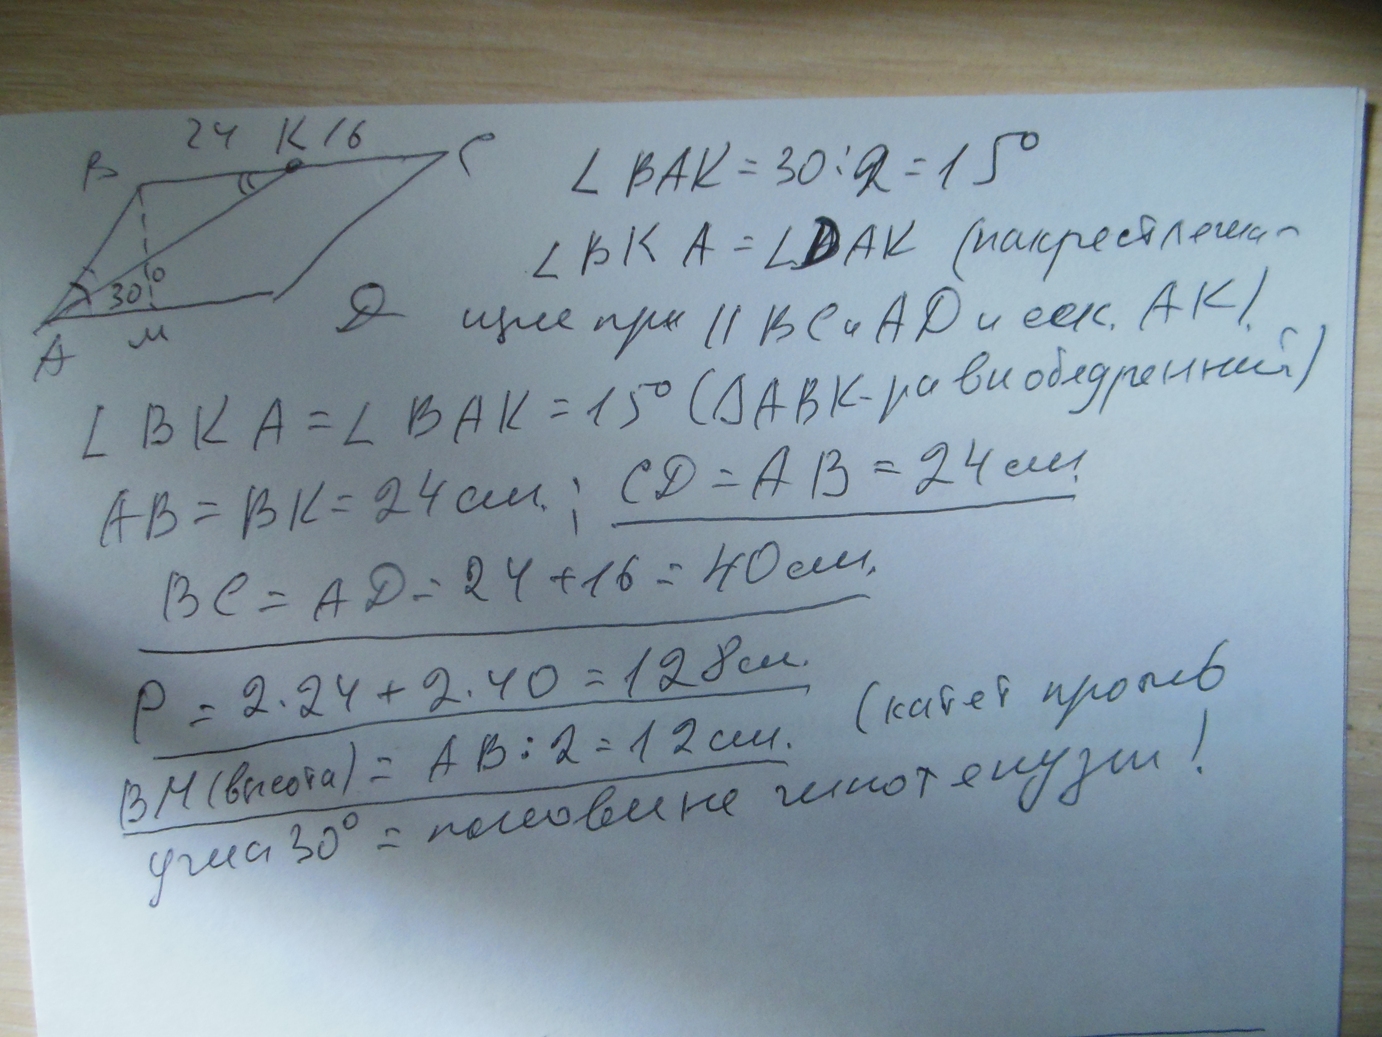 24 K 16
B
C
30°
A
M
D
∠ BAK = 30 : 2 = 15°
∠ BKA = ∠DAK (накрест лежа-
щие при || BC и AD и сек. AK).
∠ BKA = ∠ BAK = 15° (ΔABK - равнобедренный)
AB = BK = 24 см. ; CD = AB = 24 см.
BC = AD = 24 + 16 = 40 см.
P = 2·24 + 2·40 = 128 см.
BM (высота) = AB : 2 = 12 см. (катет против
угла 30° = половине гипотенузы!